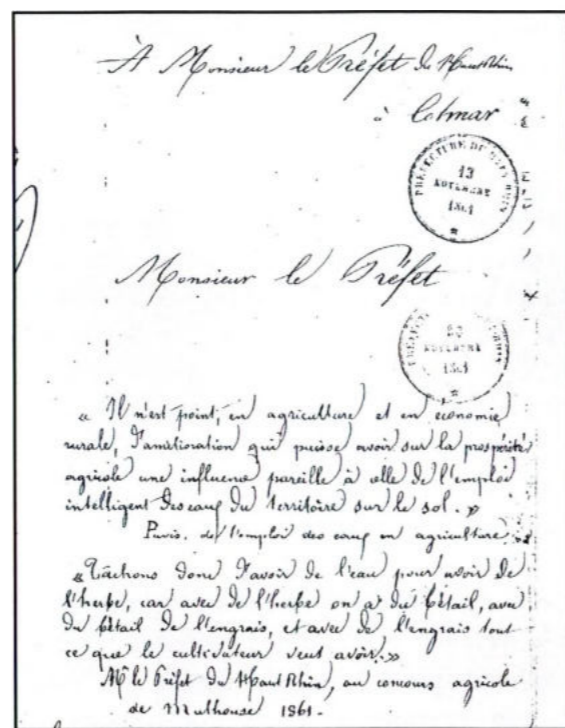 À Monsieur le Préfet du Haut Rhin
à Colmar
PRÉFECTURE DU HAUT-RHIN
13
NOVEMBRE
1861
Monsieur le Préfet
20
NOVEMBRE
1861
« Il n'est point, en agriculture et en économie
rurale, d'amélioration qui puisse avoir sur la prospérité
agricole une influence pareille à celle de l'emploi
intelligent des eaux du territoire sur le sol. »
Puvis. de l'emploi des eaux en agriculture.
« Tâchons donc d'avoir de l'eau pour avoir de
l'herbe, car avec de l'herbe on a du bétail, avec
du bétail de l'engrais, et avec de l'engrais tout
ce que le cultivateur veut avoir. »
Mr le Préfet du Haut Rhin, au concours agricole
de Mulhouse 1861.